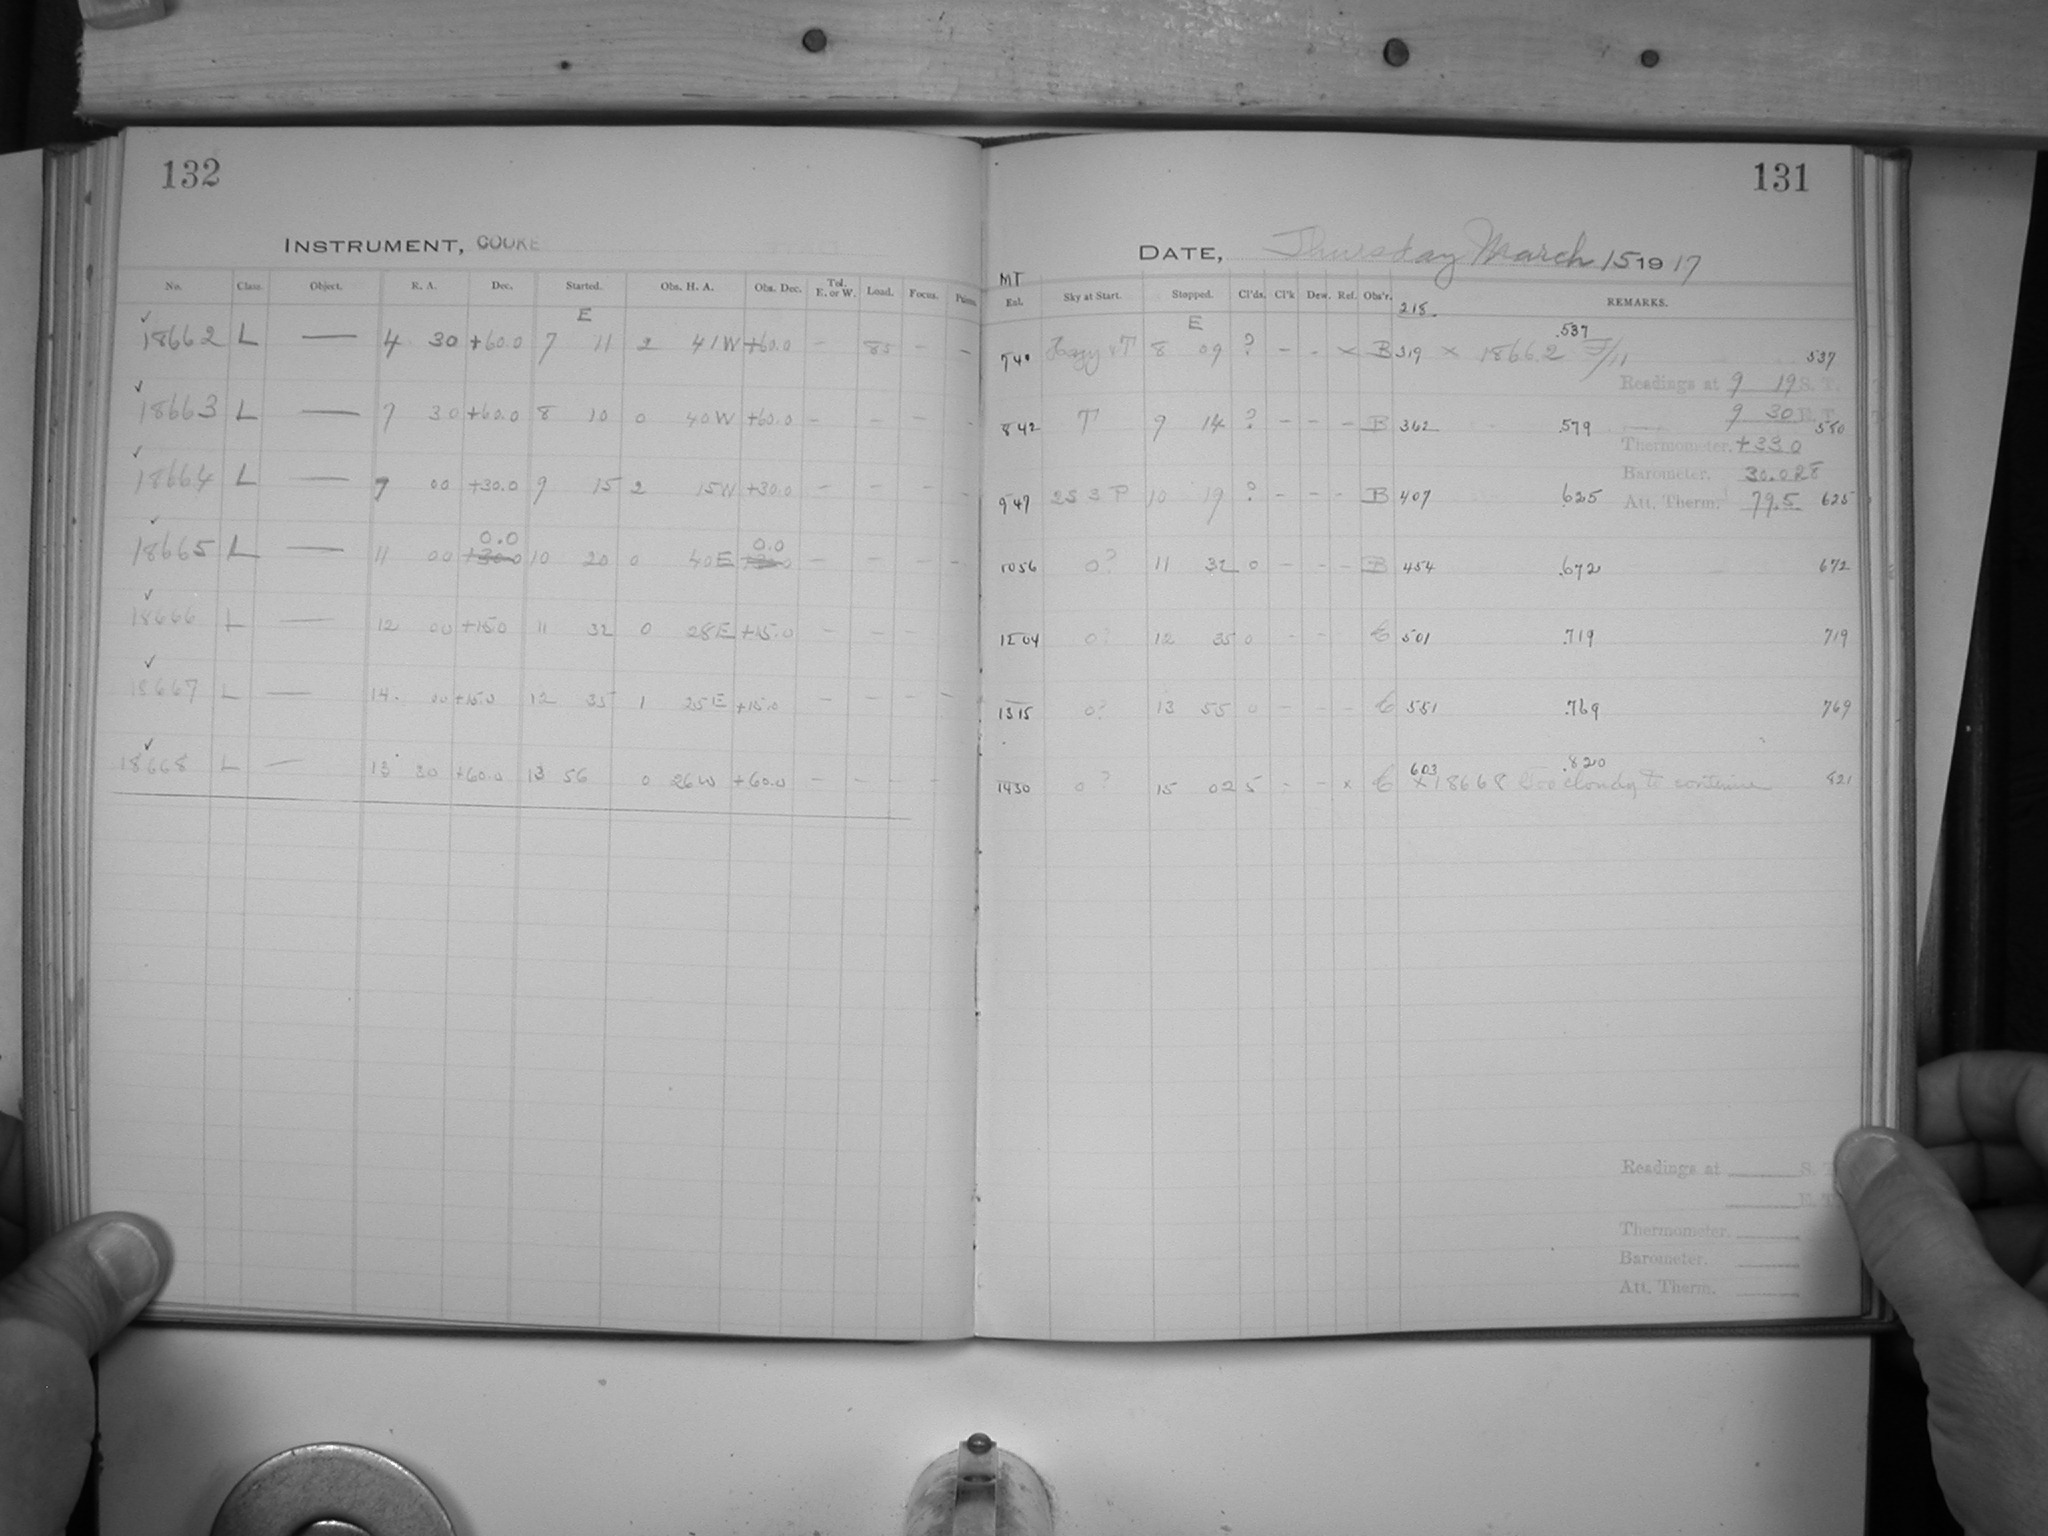 132
INSTRUMENT, COOKE
No. Class. Object. R. A. Dec. Started. Obs. H. A. Obs. Dec. Tel. E. or W. Load. Focus.
E
18662 L — 4 30 +60.0 7 11 2 41W +60.0 — 85 — —
18663 L — 7 30 +60.0 8 10 0 40W +60.0 — — — —
18664 L — 7 00 +30.0 9 15 2 15W +30.0 — — — —
0.0 0.0
18665 L — 11 00 +30.0 10 20 0 40E — — — —
18666 L — 12 00 +15.0 11 32 0 28E +15.0 — — —
18667 L — 14 00 +15.0 12 35 1 25E +15.0 — — — —
18668 L — 13 30 +60.0 13 56 0 26W +60.0 — — — —
131
DATE, Thursday March 15 1917
MT
Sky at Start. Stopped. Cl'ds. Cl'k Dew. Ref. Obs'r. REMARKS.
218
E
.537
740 8 09 ? - - × B 319 × 18662 537
Readings at 9 19 S. T.
9 30 E. T.
842 T 9 14 ? - - - B 362 .579 580
Thermometer. +33.0
Barometer. 30.028
947 10 19 ? - - - B 407 .625 Att. Therm. 79.5 625
1056 0? 11 32 0 - - - B 454 .672 672
0? 12 35 0 - - 501 .719 719
1315 0? 13 55 0 - - - 551 .769 769
603 .820
1430 0? 15 02 5 - - × × 18668 Too cloudy to continue 821
Readings at S. T.
E. T.
Thermometer.
Barometer.
Att. Therm.